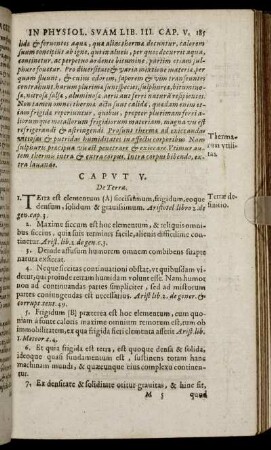 IN PHYSIOL. SVAM LIB. III. CAP. V. 185
lida & feruentes aqua, qua aliàs therma dicuntur, calorem
suum concipiunt ab igni, quia subest; per quos decurrit aqua,
continetur, ac perpetuo ardente bitumine, partim etiam sul-
phure fouetur. Pro diuersitate & varia mixtione materia, per
quam fluunt, & cuius odorem, saporem & vim transeuntes
contrahunt, harum plurima sunt species, sulphurea, bitumino-
sa, nitrosa, salsa, aluminosa, aeris aut ferri naturam referentes.
Non tamen omnes therma actu sunt calida, quaedam enim et-
iam frigida reperiuntur, quibus, propter plurimam ferri a-
liorumque metallorum frigidiorum materiam, magna vis est
refrigerandi & astringendi. Prosunt therma ad exiccandas
uitiosas & putridas humiditates in affectis corporibus. Nam
sulphuris facultatem quod vis penetrant & exiccare. Primus au-
tem thermae intra & extra corpus. Intra corpus bibendo, ex-
tra lauando.
Therma-
rum vtili-
tas.
CAPVT V.
De Terra.
TErra est elementum (A) siccissimum, frigidum, eoque
densum, solidum & grauissimum. Aristotel libro 2. de
gen. cap. 3.
Terrae de-
finitio.
2. Maxime siccum est hoc elementum, & reliquis omni-
bus siccius, quia suis terminis facile, alienis difficulter conti-
netur. Arist. lib. 2. de gen. c. 3.
3. Deinde affusum humorem omnem combibens suapte
natura exsiccat.
4. Neque siccitas continuationi obstat, vt quibusdam vi-
detur, qui proinde terram humidam volunt esse. Nam humor
non ad continuandas partes simpliciter, sed ad mistorum
partes continuendas est necessarius. Arist. lib. 2. de gener. &
corrupt. text. 49.
5. Frigidum [B] praeterea est hoc elementum, cum quo-
niam à fonte caloris maxime omnium remotum est, tum ob
immobilitatem, ex qua frigida fieri elementa assolent. Arist. lib.
1. Meteor. c. 4.
6. Et quia frigida est terra, est quoque densa & solida,
ideoque quasi fundamentum est, sustinens totam hanc
machinam mundi, & quaecunque eius complexu continen-
tur.
7. Ex densitate & soliditate oritur grauitas, & hinc sit,
M 5 quod